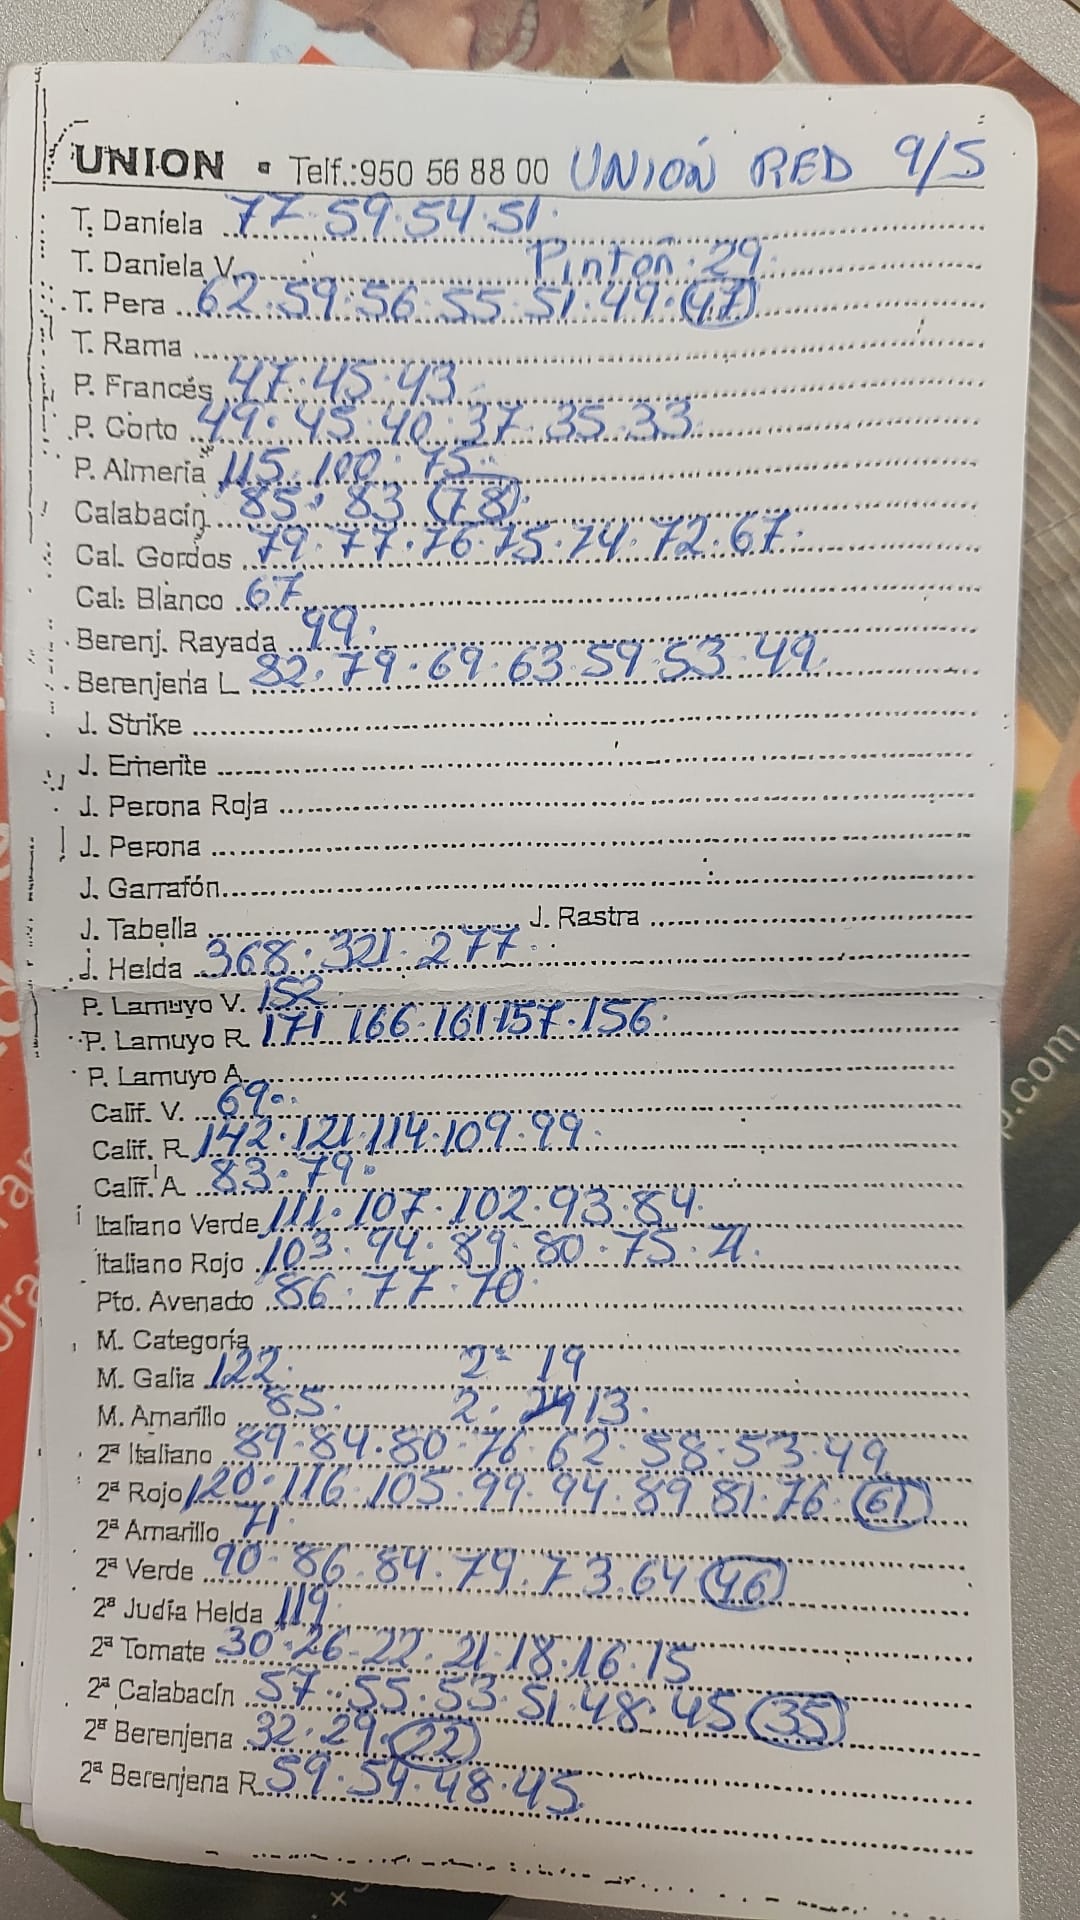 UNION • Telf.:950 56 88 00 UNIÓN RED 9/5
T. Daniela 77·59·54·51·
T. Daniela V. Pintón·29·
T. Pera 62·59·56·55·51·49·(47)
T. Rama
P. Francés 47·45·43
P. Corto 49·45·40·37·35·33
P. Almería 115·100·75·
Calabacín 85·83 (78)·
Cal. Gordos 79·77·76·75·74·72·67·
Cal. Blanco 67
Berenj. Rayada 99·
Berenjena L 82·79·69·63·59·53·49·
J. Strike
J. Emerite
J. Perona Roja
J. Perona
J. Garrafón
J. Tabella J. Rastra
J. Helda 368·321·277·
P. Lamuyo V. 152
P. Lamuyo R. 171 166·161·157·156·
P. Lamuyo A.
Calif. V. 69·
Calif. R. 142·121·114·109·99·
Calif. A. 83·79·
Italiano Verde 111·107·102·93·84·
Italiano Rojo 103·94·89·80·75·71·
Pto. Avenado 86·77·70·
M. Categoría
M. Galia 122· 2ª 19
M. Amarillo 85· 2· 13·
2ª Italiano 89·84·80·76·62·58·53·49
2ª Rojo 120·116·105·99·94·89 81·76·(61)
2ª Amarillo 71·
2ª Verde 90·86·84·79·73·64 (46)
2ª Judía Helda 119·
2ª Tomate 30·26·22·21·18·16·15
2ª Calabacín 57·55·53·51·48·45 (35)
2ª Berenjena 32·29·(22)
2ª Berenjena R. 59·54·48·45